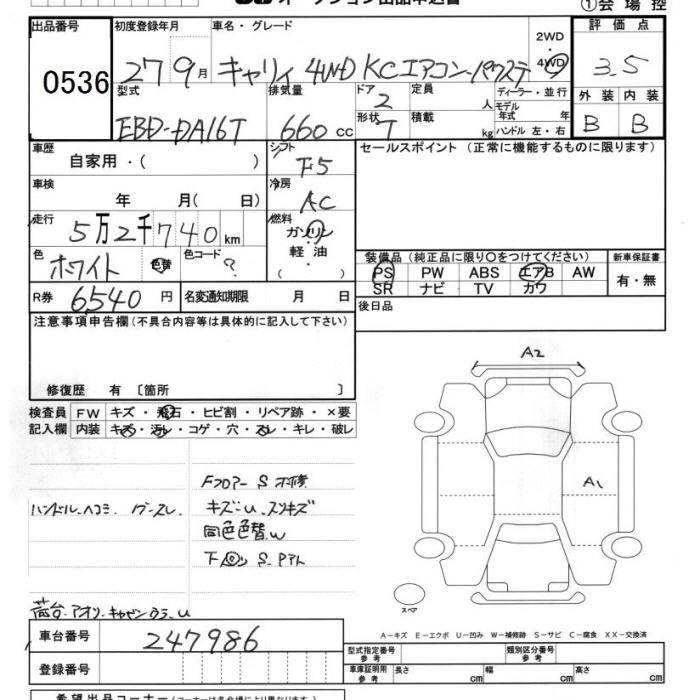 ①会場控
出品番号 0536
初度登録年月 27 9月
車名・グレード キャリィ 4WD KCエアコン・パワステ
2WD・4WD
評価点 3.5
型式 EBD-DA16T
排気量 660 cc
ドア 2
形状 T
定員 人
積載 kg
ディーラー・並行
モデル年式 年
ハンドル 左・右
外装 B
内装 B
車歴 自家用・( )
シフト F5
セールスポイント (正常に機能するものに限ります)
車検 年 月( 日)
冷房 AC
走行 5万2千740km
燃料 ガソリン 軽油・( )
色 ホワイト 色替 色コード ?
装備品(純正品に限り○をつけてください)
PS PW ABS エアB AW
SR ナビ TV カワ
新車保証書 有・無
R券 6540円
名変通知期限 月 日
後日品
注意事項申告欄(不具合内容等は具体的に記入して下さい)
修復歴 有 〔箇所 〕
検査員記入欄
FW キズ・飛石・ヒビ割・リペア跡・×要
内装 キズ・汚レ・コゲ・穴・スレ・キレ・破レ
Fフロアー S 不修
ハンドル ヘコミ
キズ
同色色替 W
下回り S
A2
A1
スペア
荷台・アオリ・キャビンウラ・U
A-キズ E-エクボ U-凹み W-補修跡 S-サビ C-腐食 XX-交換済
車台番号 247986
登録番号
型式指定番号 参考
類別区分番号 参考
車庫証明用 参考 長さ cm 幅 cm 高さ cm
希望出品コーナー